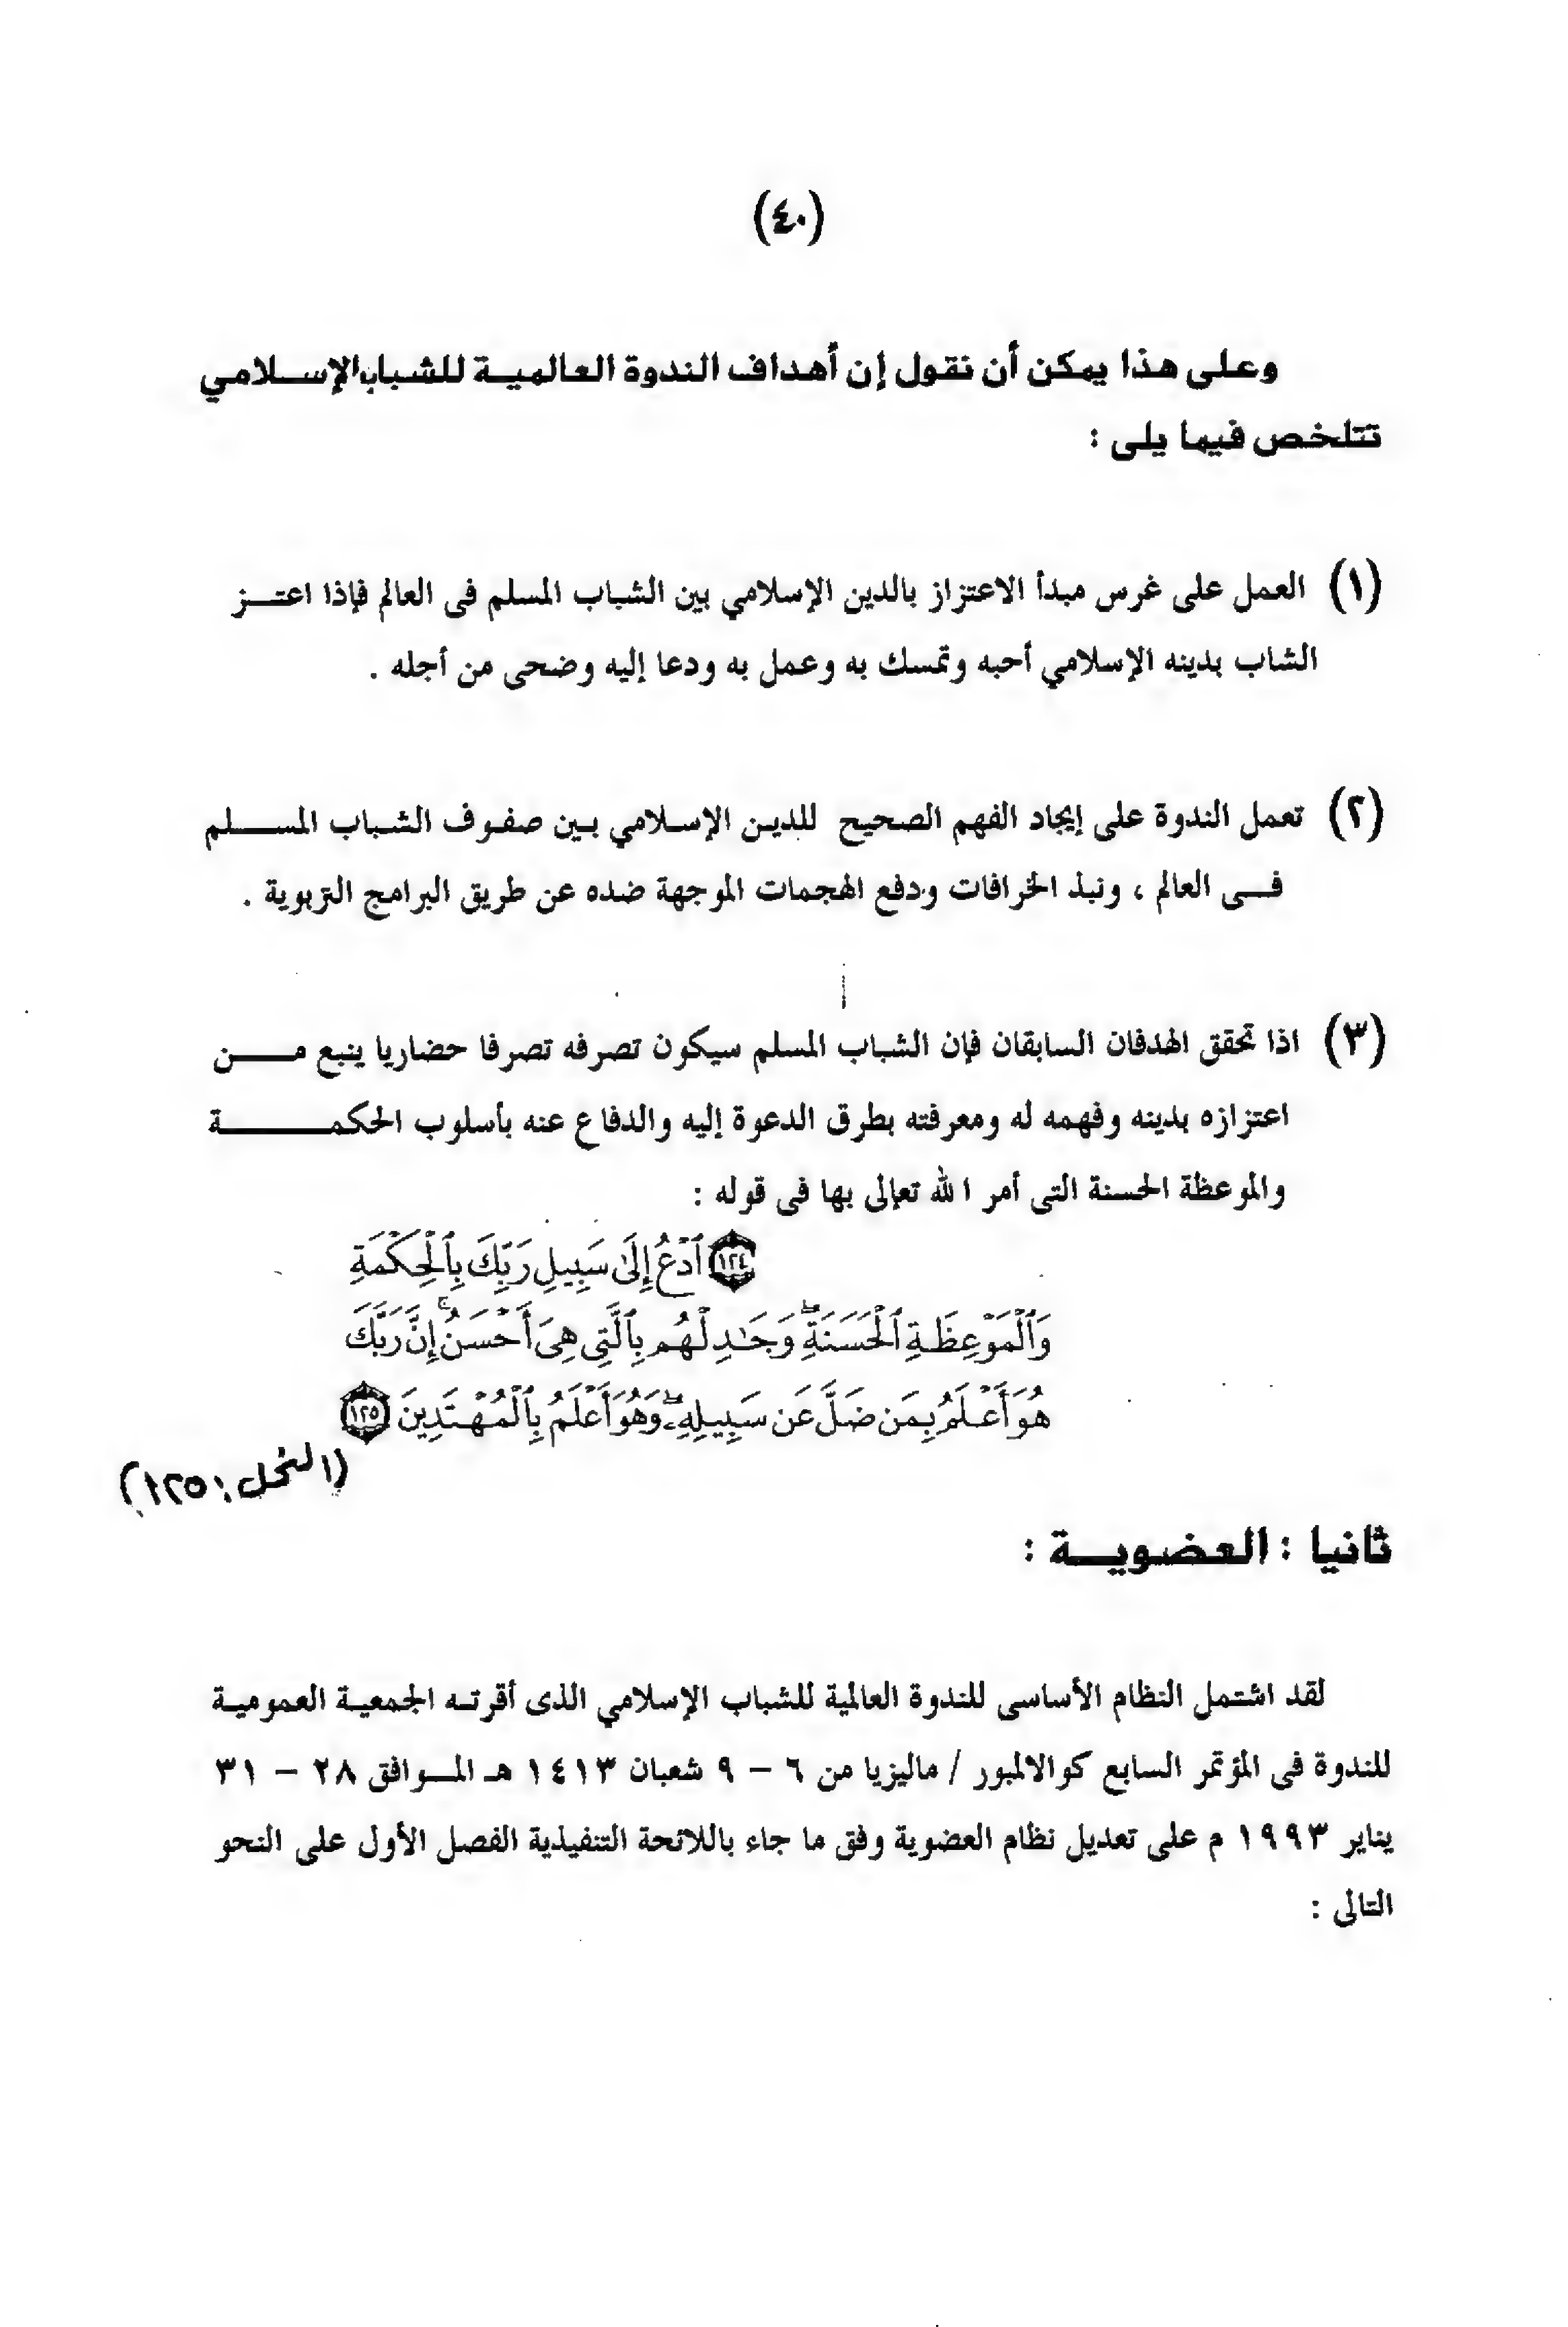 (٤٠)
وعلى هذا يمكن أن نقول إن أهداف الندوة العالمية للشباب الإسلامي
تتلخص فيما يلى :
(١) العمل على غرس مبدأ الاعتزاز بالدين الإسلامي بين الشباب المسلم فى العالم فإذا اعتز
الشاب بدينه الإسلامي أحبه وتمسك به وعمل به ودعا إليه وضحى من أجله .
(٢) تعمل الندوة على إيجاد الفهم الصحيح للدين الإسلامي بين صفوف الشباب المسلم
فى العالم ، ونبذ الخرافات ودفع الهجمات الموجهة ضده عن طريق البرامج التربوية .
(٣) اذا تحقق الهدفان السابقان فإن الشباب المسلم سيكون تصرفه تصرفا حضاريا ينبع من
اعتزازه بدينه وفهمه له ومعرفته بطرق الدعوة إليه والدفاع عنه بأسلوب الحكمة
والموعظة الحسنة التى أمر الله تعالى بها فى قوله :
١٢٤ ٱدْعُ إِلَىٰ سَبِيلِ رَبِّكَ بِٱلْحِكْمَةِ
وَٱلْمَوْعِظَةِ ٱلْحَسَنَةِۖ وَجَٰدِلْهُم بِٱلَّتِى هِىَ أَحْسَنُۚ إِنَّ رَبَّكَ
هُوَ أَعْلَمُ بِمَن ضَلَّ عَن سَبِيلِهِۦۖ وَهُوَ أَعْلَمُ بِٱلْمُهْتَدِينَ ١٢٥
(النحل : ١٢٥)
ثانيا : العضوية :
لقد اشتمل النظام الأساسى للندوة العالمية للشباب الإسلامي الذى أقرته الجمعية العمومية
للندوة فى المؤتمر السابع كوالالمبور / ماليزيا من ٦ – ٩ شعبان ١٤١٣ هـ الموافق ٢٨ – ٣١
يناير ١٩٩٣ م على تعديل نظام العضوية وفق ما جاء باللائحة التنفيذية الفصل الأول على النحو
التالى :